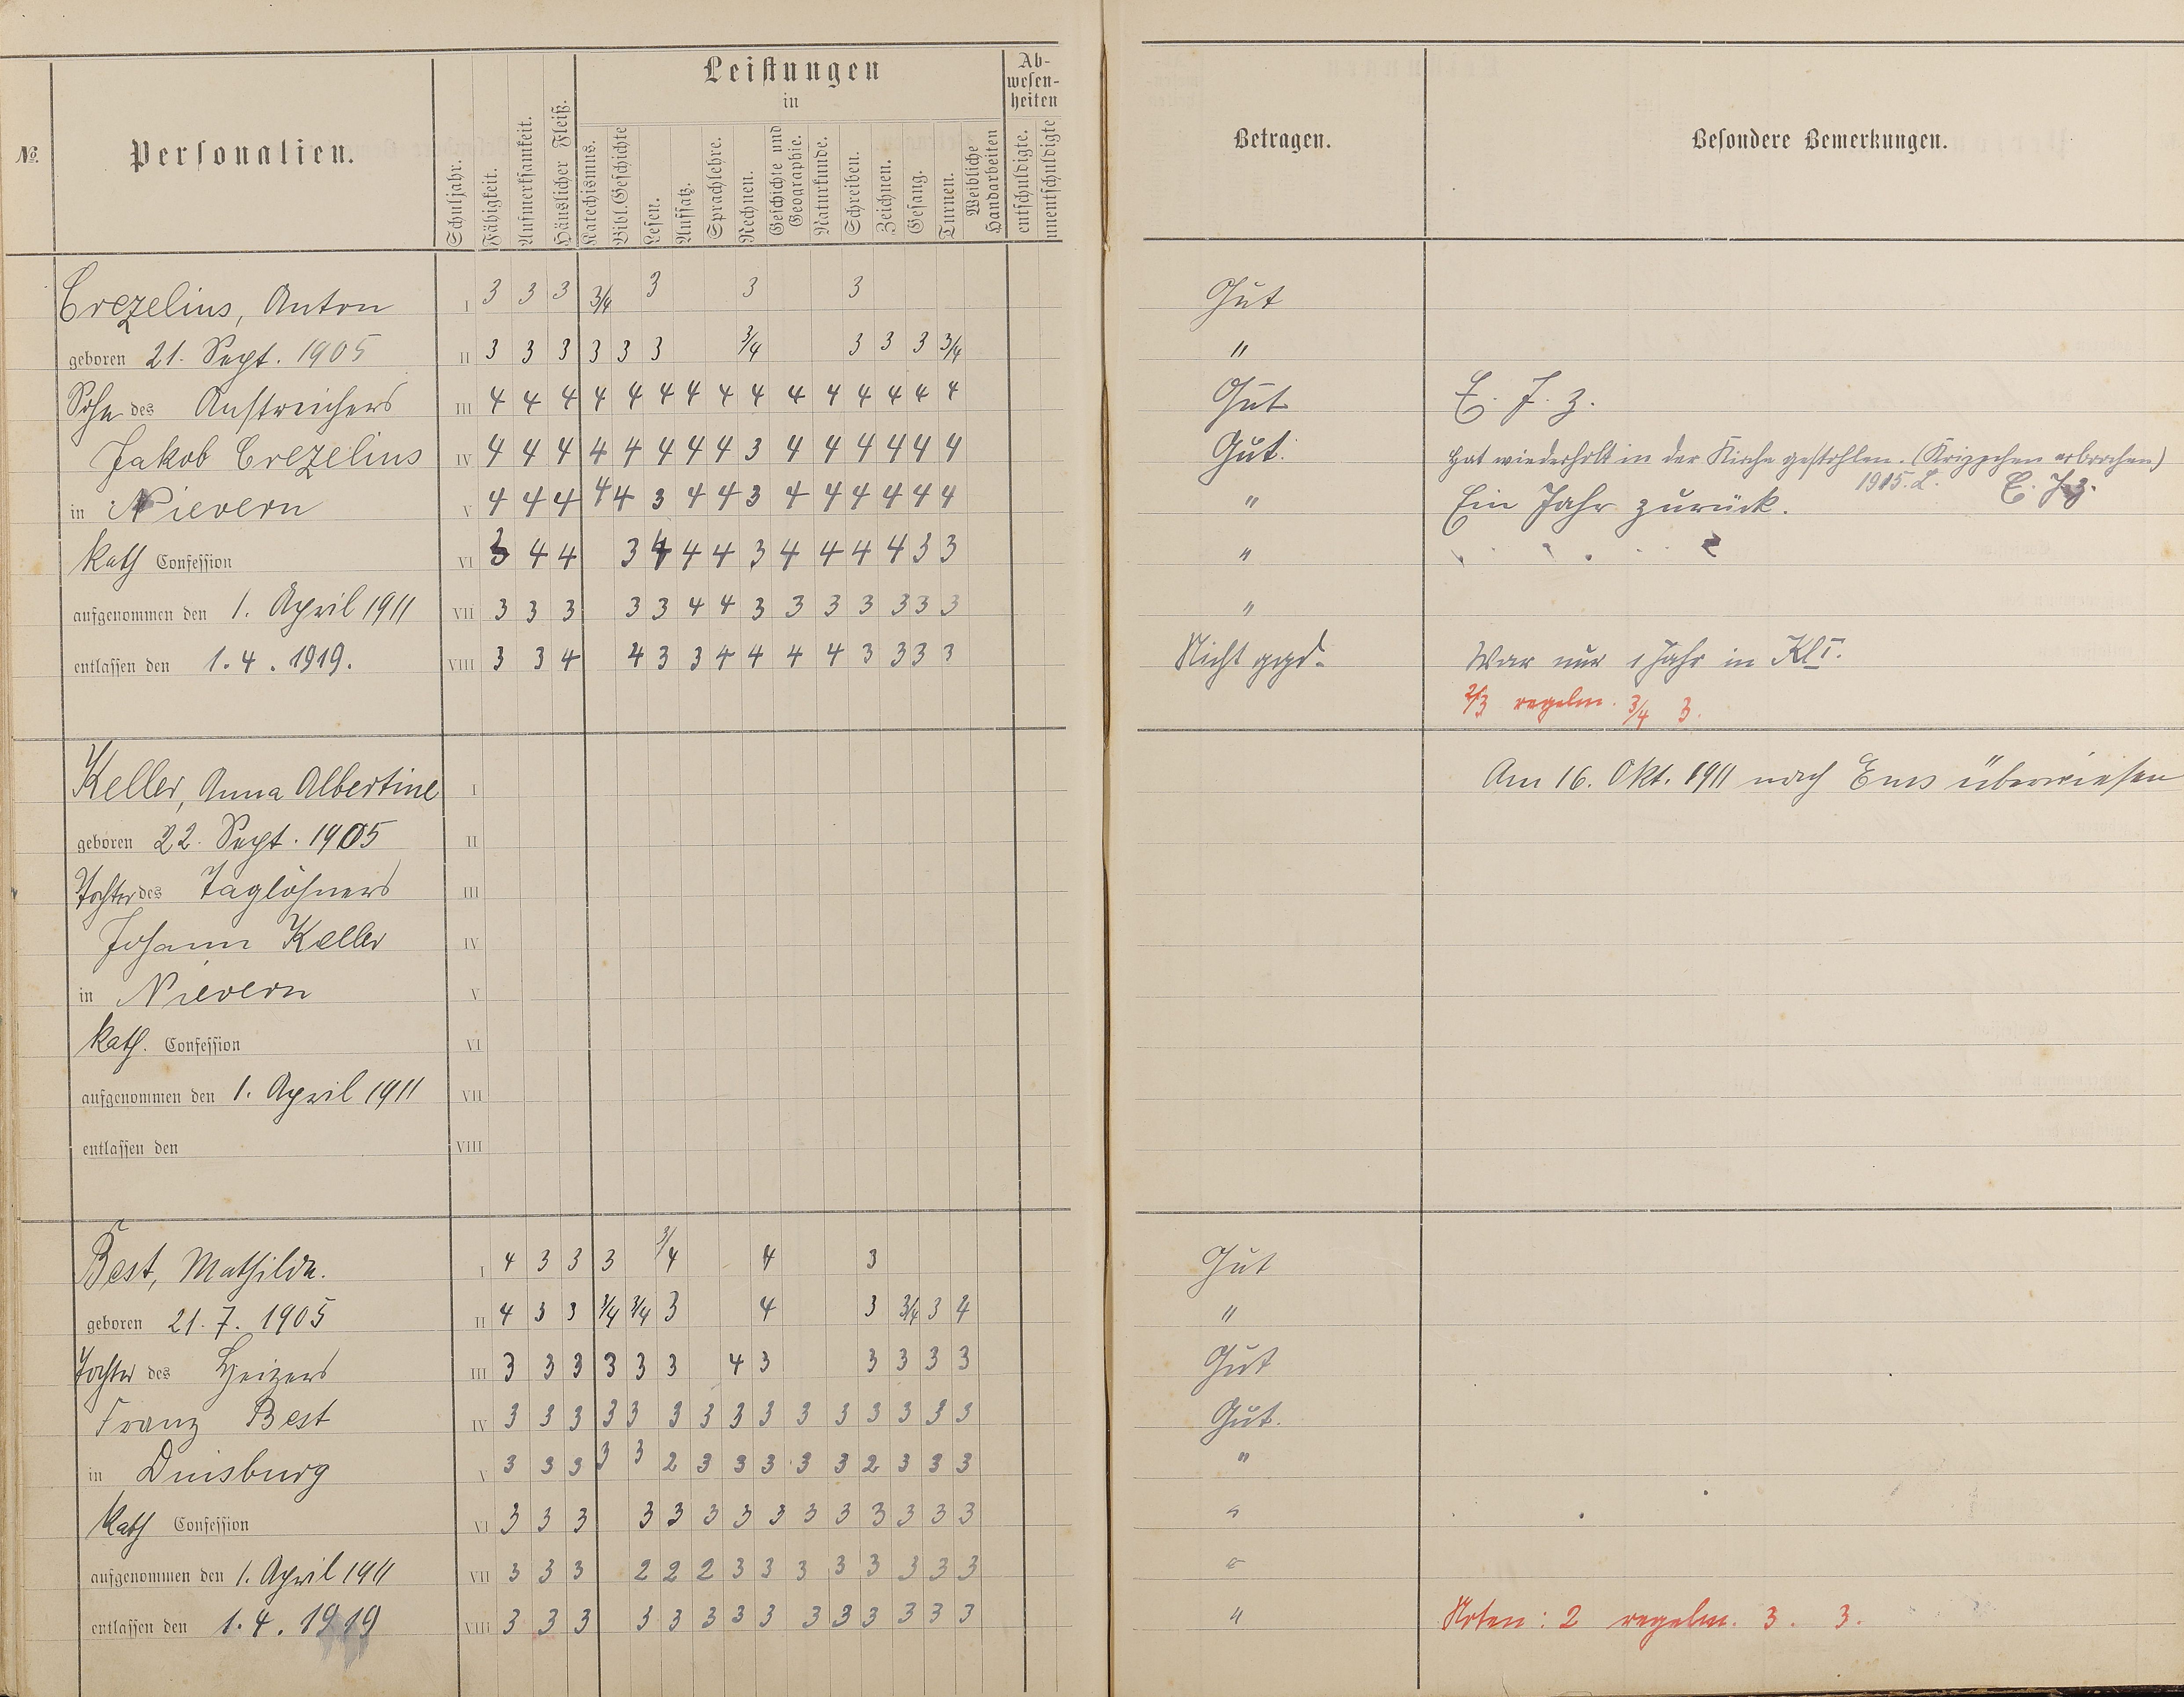 №.
Personalien.
Schuljahr.
Fähigkeit.
Aufmerksamkeit.
Häuslicher Fleiß.
Leistungen
in
Katechismus.
Bibl. Geschichte
Lesen.
Aufsatz.
Sprachlehre.
Rechnen.
Geschichte und Geographie.
Naturkunde.
Schreiben.
Zeichnen.
Gesang.
Turnen.
Weibliche Handarbeiten
Ab-
wesen-
heiten
entschuldigte.
unentschuldigte
Betragen.
Besondere Bemerkungen.
Crezelius, Anton I 3 3 3 3/4 3 3 3 Gut
geboren 21. Sept. 1905 II 3 3 3 3 3 3 3/4 3 3 3 3/4 "
Sohn des Anstreichers III 4 4 4 4 4 4 4 4 4 4 4 4 4 4 4 Gut E. J. z.
Jakob Crezelius IV 4 4 4 4 4 4 4 4 3 4 4 4 4 4 4 Gut. Hat wiederholt in der Kirche gestohlen. (Krippchen erbrochen)
1915. L. E. J. z.
in Nievern V 4 4 4 4 4 3 4 4 3 4 4 4 4 4 4 " Ein Jahr zurück.
Kath Confession VI 3 4 4 3 4 4 4 3 4 4 4 4 3 3 "
aufgenommen den 1. April 1911 VII 3 3 3 3 3 4 4 3 3 3 3 3 3 3 "
entlassen den 1. 4. 1919. VIII 3 3 4 4 3 3 4 4 4 4 3 3 3 3 Nicht War nur 1 Jahr in Kl I.
2/3 regelm. 3/4 3.
Keller, Anna Albertine I Am 16. Okt. 1911 nach Ems überwiesen
geboren 22. Sept. 1905 II
Tochter des Taglöhners III
Johann Keller IV
in Nievern V
Kath. Confession VI
aufgenommen den 1. April 1911 VII
entlassen den VIII
Best, Mathilde. I 4 3 3 3 3/4 4 3 Gut
geboren 21. 7. 1905 II 4 3 3 3/4 3/4 3 4 3 3/4 3 4 "
Tochter des Heizers III 3 3 3 3 3 3 4 3 3 3 3 3 Gut
Franz Best IV 3 3 3 3 3 3 3 3 3 3 3 3 3 3 3 Gut.
in Duisburg V 3 3 3 3 3 2 3 3 3 3 3 2 3 3 3 "
Kath Confession VI 3 3 3 3 3 3 3 3 3 3 3 3 3 3 "
aufgenommen den 1. April 1911 VII 3 3 3 2 2 2 3 3 3 3 3 3 3 3 "
entlassen den 1. 4. 1919 VIII 3 3 3 3 3 3 3 3 3 3 3 3 3 3 " Noten: 2 regelm. 3. 3.